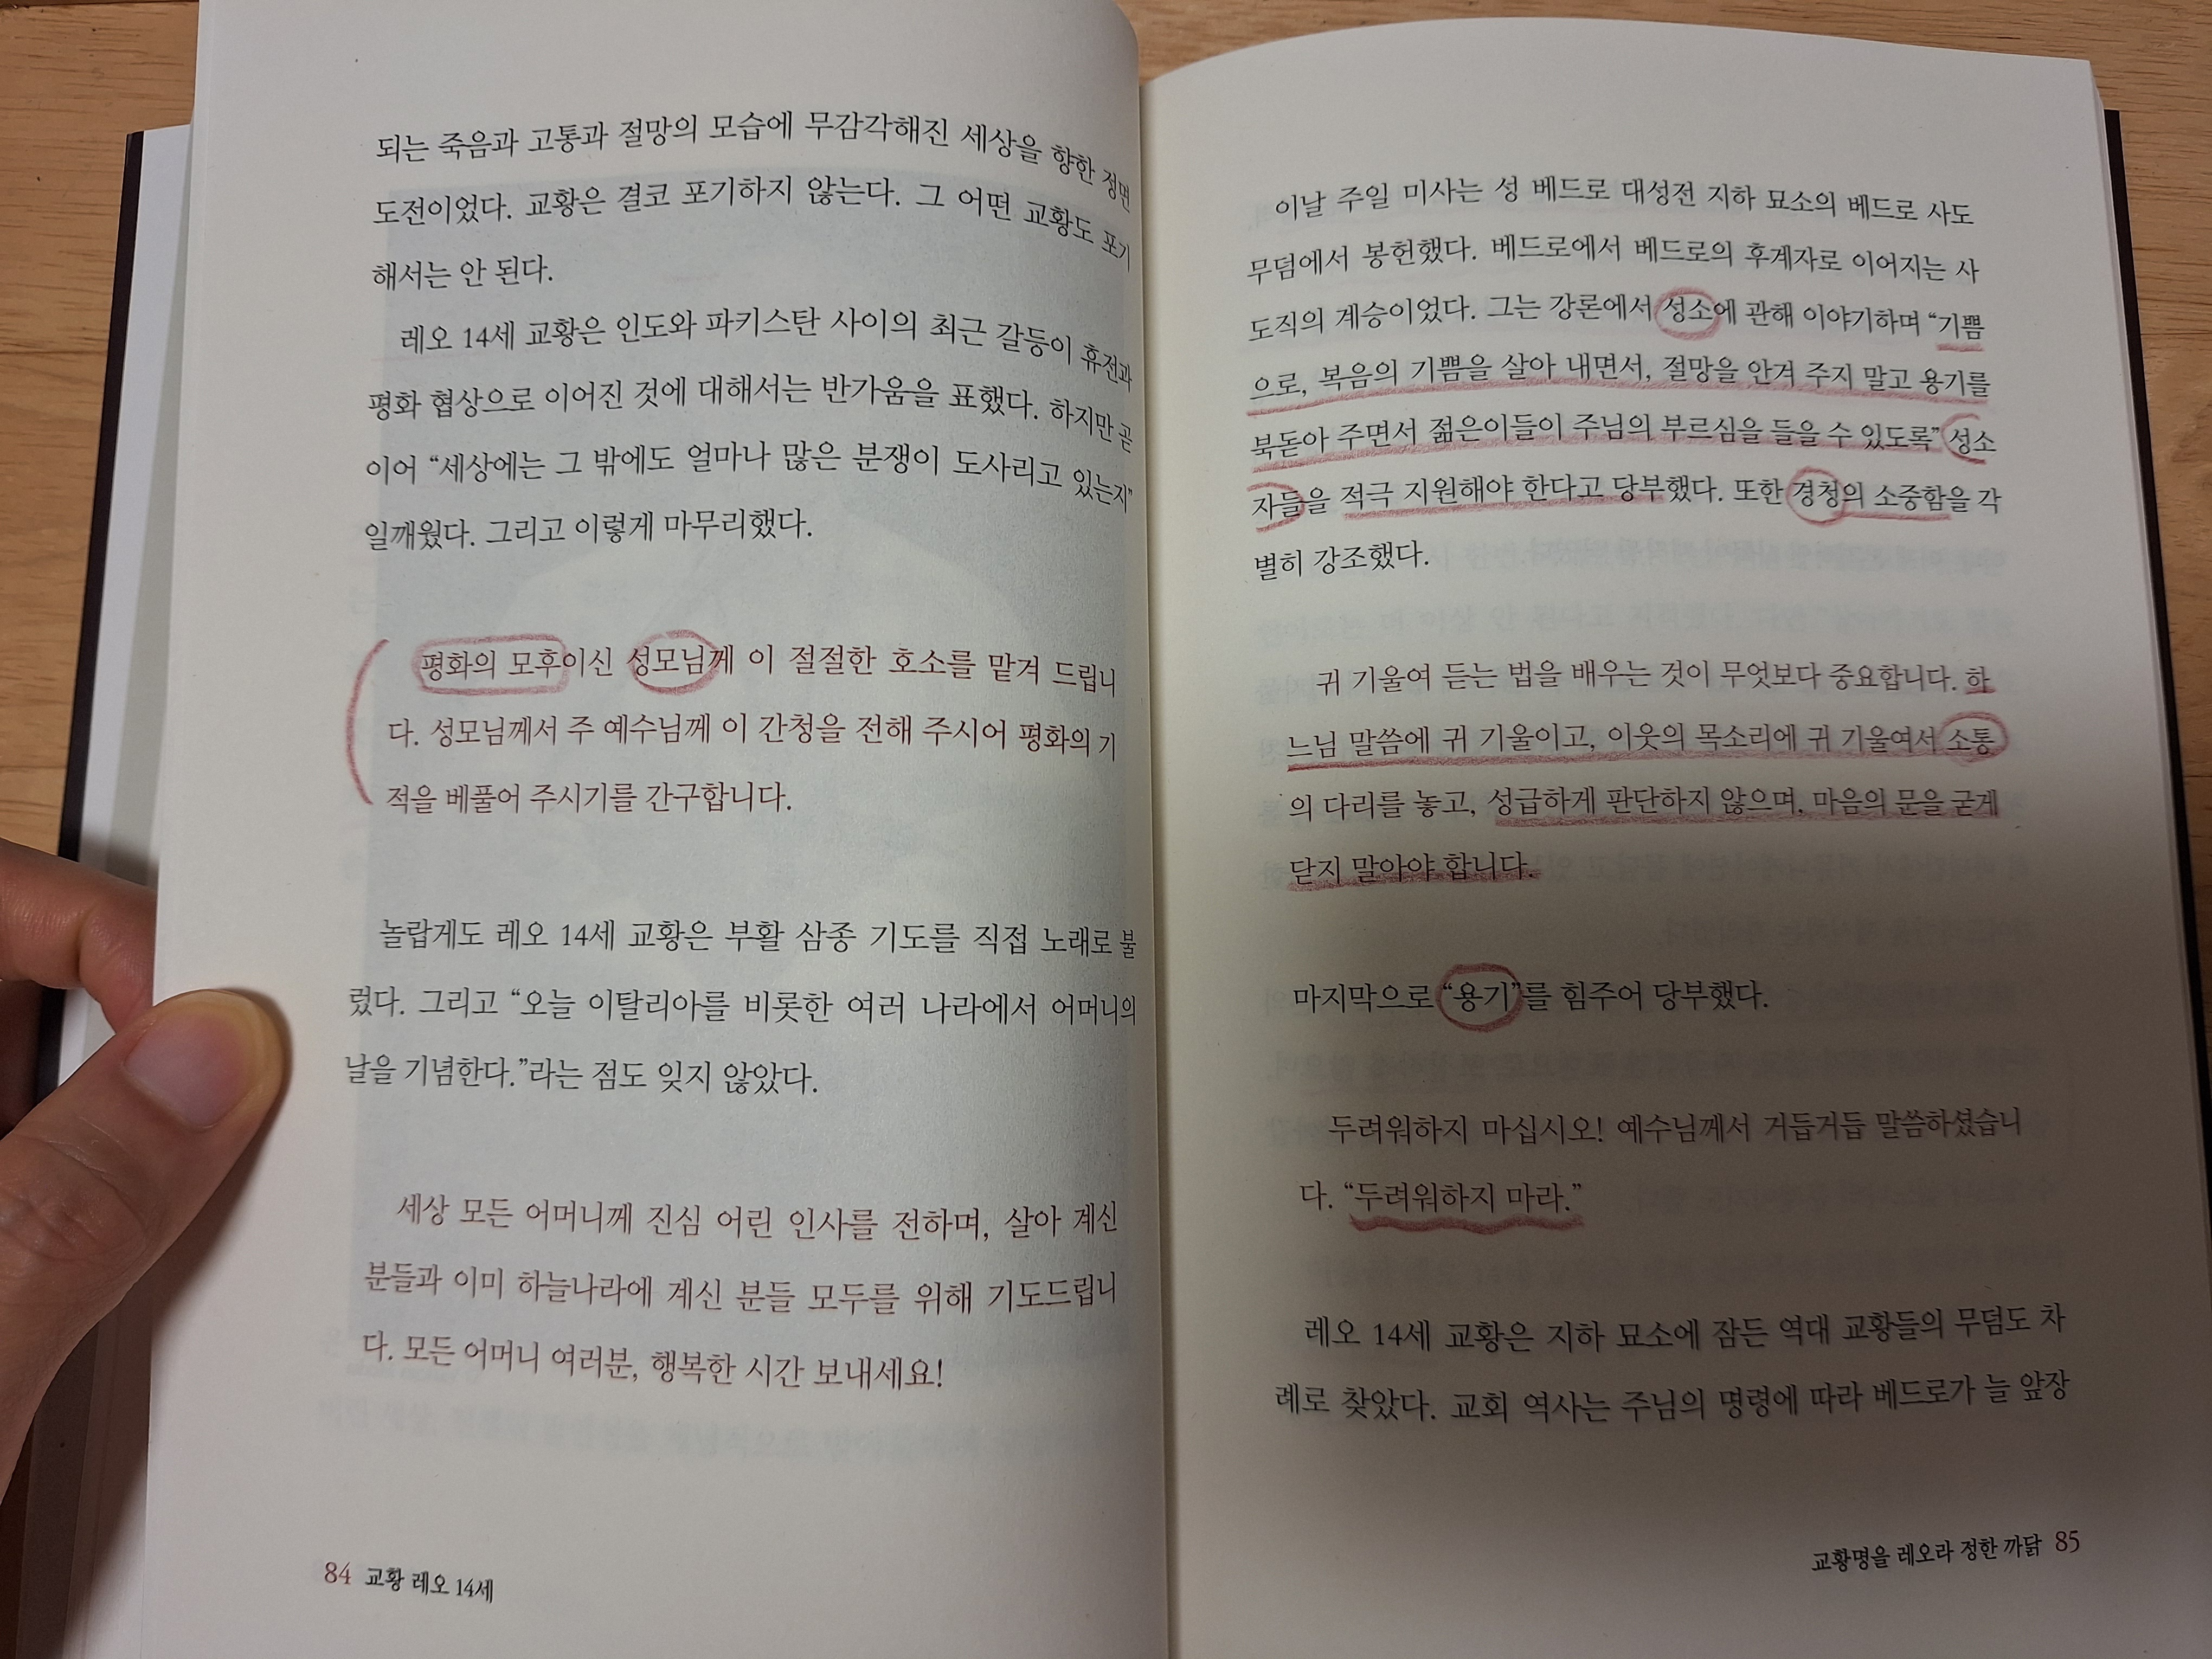 되는 죽음과 고통과 절망의 모습에 무감각해진 세상을 향한 정면
도전이었다. 교황은 결코 포기하지 않는다. 그 어떤 교황도 포기
해서는 안 된다.
레오 14세 교황은 인도와 파키스탄 사이의 최근 갈등이 휴전과
평화 협상으로 이어진 것에 대해서는 반가움을 표했다. 하지만 곧
이어 “세상에는 그 밖에도 얼마나 많은 분쟁이 도사리고 있는지”
일깨웠다. 그리고 이렇게 마무리했다.
평화의 모후이신 성모님께 이 절절한 호소를 맡겨 드립니
다. 성모님께서 주 예수님께 이 간청을 전해 주시어 평화의 기
적을 베풀어 주시기를 간구합니다.
놀랍게도 레오 14세 교황은 부활 삼종 기도를 직접 노래로 불
렀다. 그리고 “오늘 이탈리아를 비롯한 여러 나라에서 어머니의
날을 기념한다.”라는 점도 잊지 않았다.
세상 모든 어머니께 진심 어린 인사를 전하며, 살아 계신
분들과 이미 하늘나라에 계신 분들 모두를 위해 기도드립니
다. 모든 어머니 여러분, 행복한 시간 보내세요!
84 교황 레오 14세
이날 주일 미사는 성 베드로 대성전 지하 묘소의 베드로 사도
무덤에서 봉헌했다. 베드로에서 베드로의 후계자로 이어지는 사
도직의 계승이었다. 그는 강론에서 성소에 관해 이야기하며 “기쁨
으로, 복음의 기쁨을 살아 내면서, 절망을 안겨 주지 말고 용기를
북돋아 주면서 젊은이들이 주님의 부르심을 들을 수 있도록” 성소
자들을 적극 지원해야 한다고 당부했다. 또한 경청의 소중함을 각
별히 강조했다.
귀 기울여 듣는 법을 배우는 것이 무엇보다 중요합니다. 하
느님 말씀에 귀 기울이고, 이웃의 목소리에 귀 기울여서 소통
의 다리를 놓고, 성급하게 판단하지 않으며, 마음의 문을 굳게
닫지 말아야 합니다.
마지막으로 “용기”를 힘주어 당부했다.
두려워하지 마십시오! 예수님께서 거듭거듭 말씀하셨습니
다. “두려워하지 마라.”
레오 14세 교황은 지하 묘소에 잠든 역대 교황들의 무덤도 차
례로 찾았다. 교회 역사는 주님의 명령에 따라 베드로가 늘 앞장
교황명을 레오라 정한 까닭 85